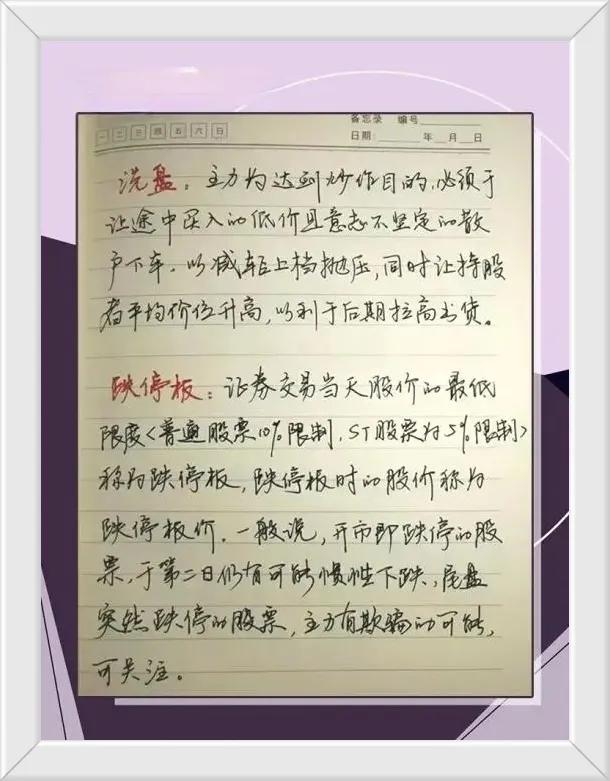 一 二 三 四 五 六 日
备忘录 编号
日期: 年 月 日
洗盘:主力为达到炒作目的,必须于
让途中买入的低价且意志不坚定的散
户下车.以减轻上档抛压,同时让持股
者平均价位升高,以利于后期拉高出货。
跌停板:证券交易当天股价的最低
限度<普通股票10%限制,ST股票为5%限制>
称为跌停板,跌停板时的股价称为
跌停板价.一般说,开市即跌停的股
票,于第二日仍有可能惯性下跌,尾盘
突然跌停的股票,主力有欺骗的可能,
可关注。